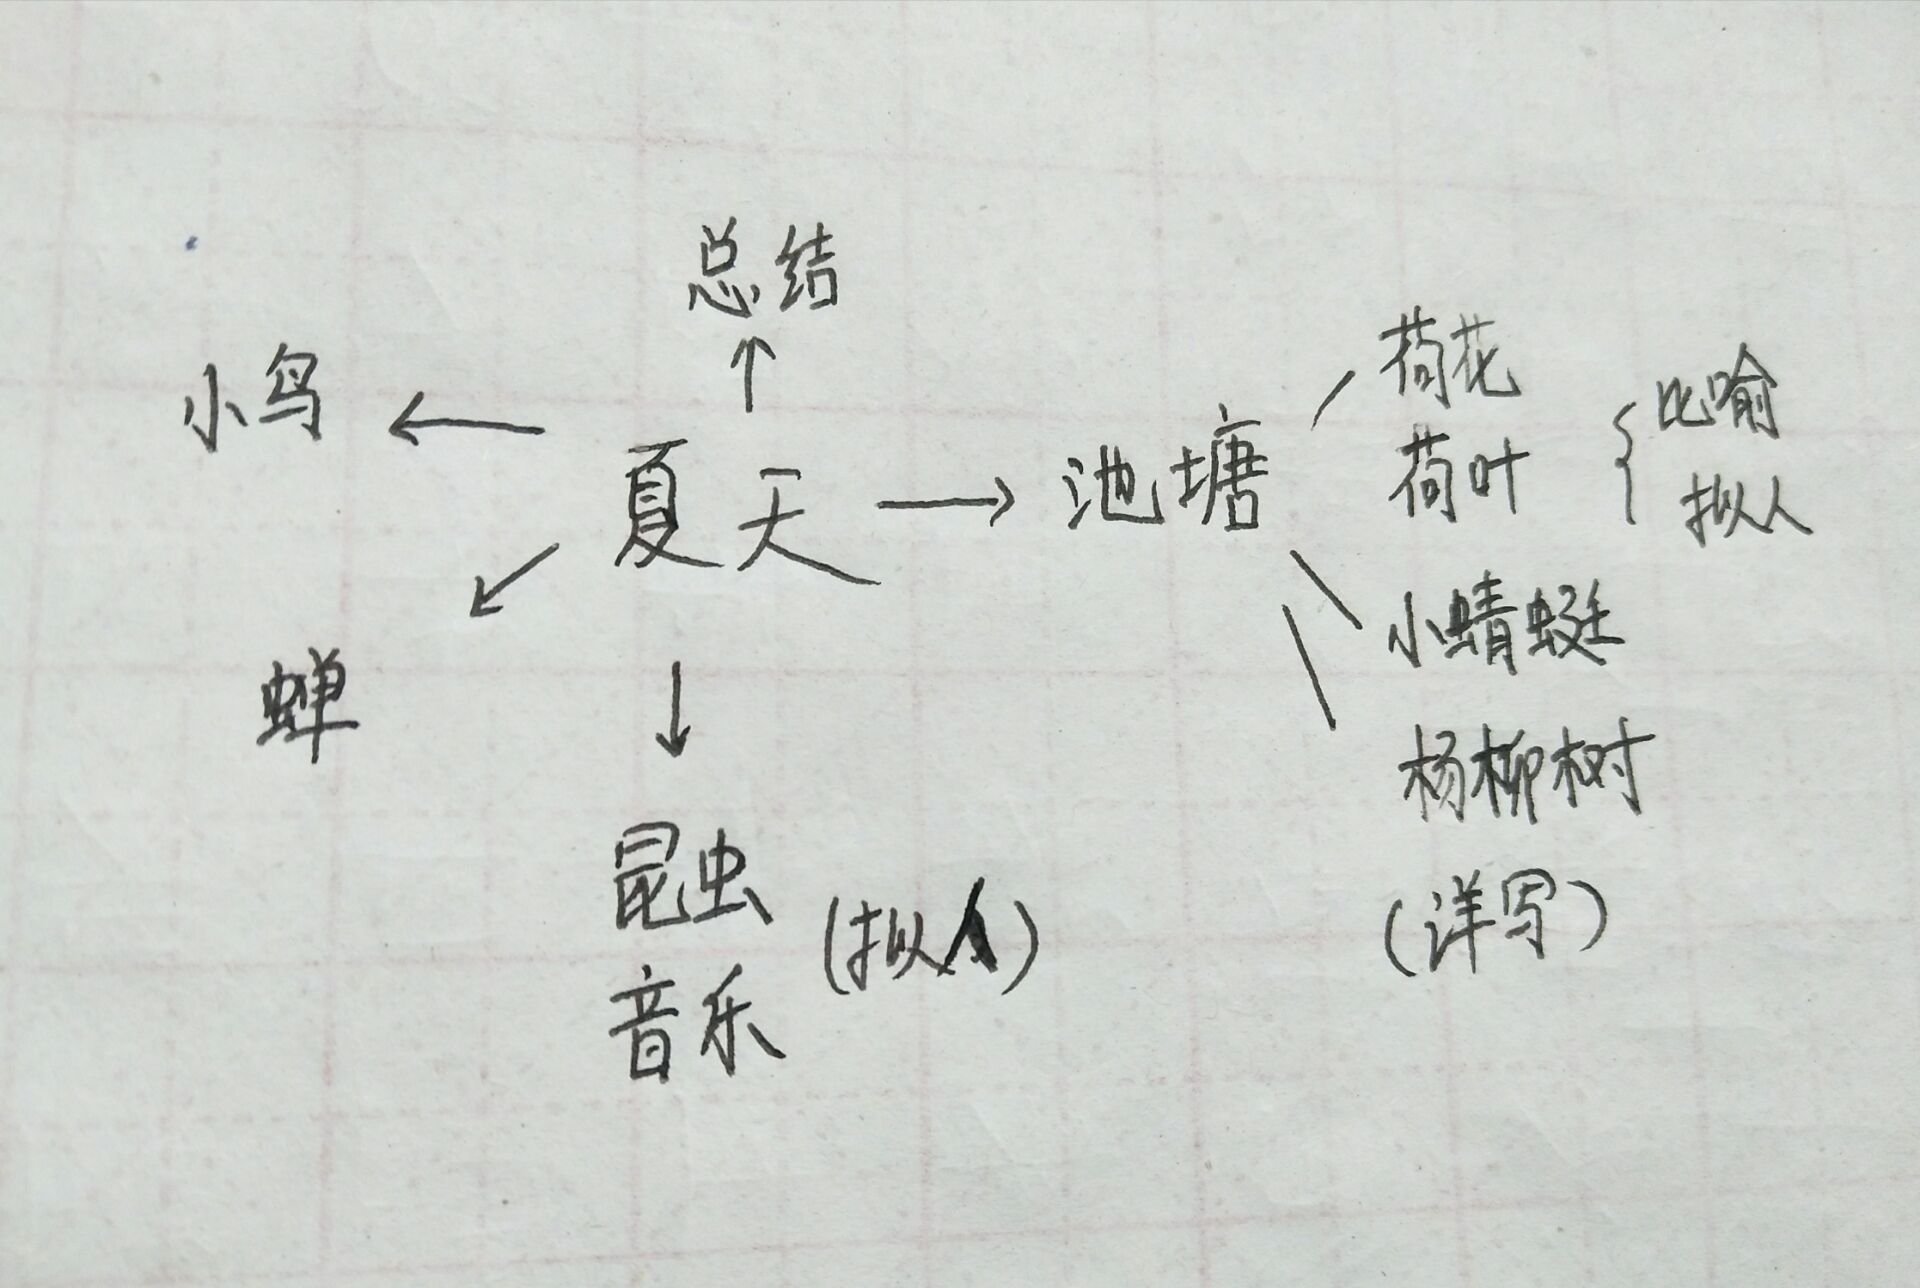 总结
小鸟
夏天
池塘
荷花
荷叶
比喻
拟人
小蜻蜓
杨柳树
(详写)
蝉
昆虫
音乐
(拟人)